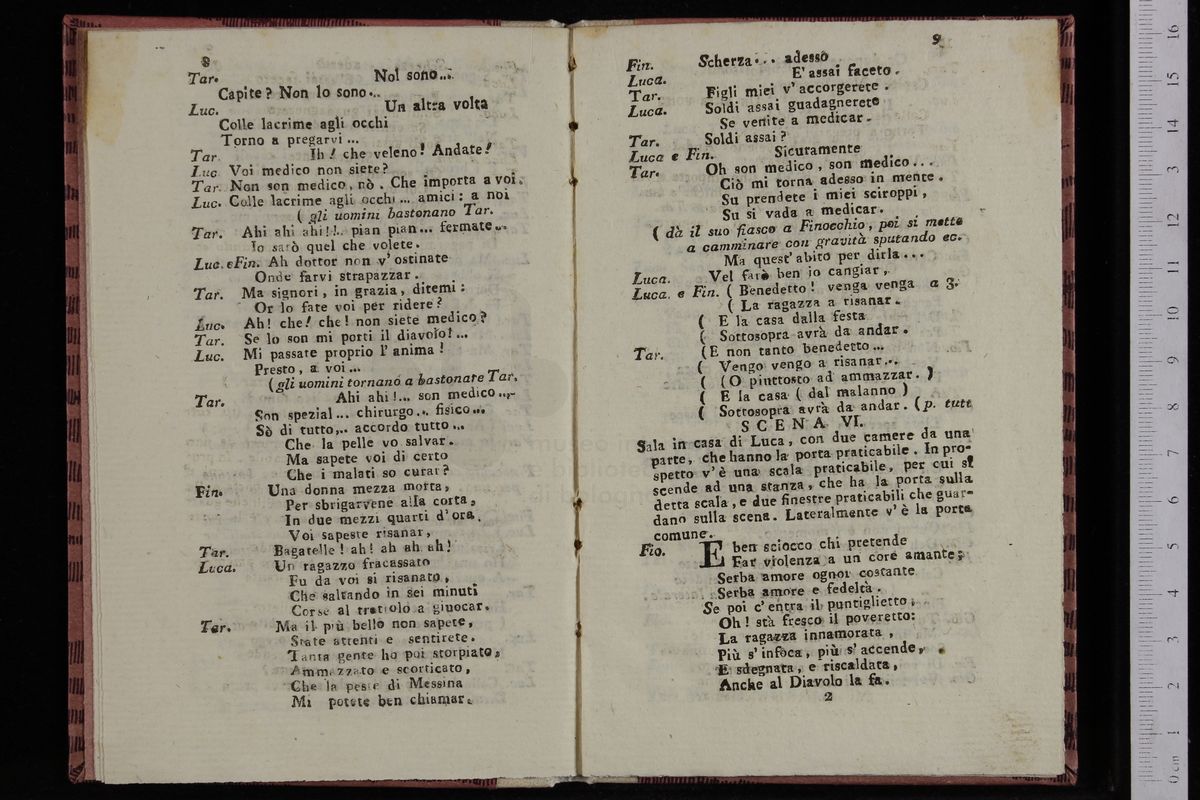 8
Tar. Nol sono...
Capite? Non lo sono...
Luc. Un altra volta
Colle lacrime agli occhi
Torno a pregarvi ...
Tar. Ih! che veleno! Andate!
Luc. Voi medico non siete?
Tar. Non son medico, nò. Che importa a voi.
Luc. Colle lacrime agli occhi ... amici: a noi
( gli uomini bastonano Tar.
Tar. Ahi ahi ahi!!.. pian pian... fermate...
Io sarò quel che volete.
Luc. e Fin. Ah dottor non v' ostinate
Onde farvi strapazzar.
Tar. Ma signori, in grazia, ditemi:
Or lo fate voi per ridere?
Luc. Ah! che! che! non siete medico?
Tar. Se lo son mi porti il diavolo!...
Luc. Mi passate proprio l' anima!
Presto, a voi...
(gli uomini tornano a bastonare Tar.
Tar. Ahi ahi!... son medico...
Son spezial... chirurgo... fisico...
Sò di tutto,.. accordo tutto...
Che la pelle vo salvar.
Ma sapete voi di certo
Che i malati so curar?
Fin. Una donna mezza morta,
Per sbrigarvene alla corta,
In due mezzi quarti d' ora,
Voi sapeste risanar,
Tar. Bagatelle! ah! ah ah ah!
Luca. Un ragazzo fracassato
Fu da voi si risanato,
Che saltando in sei minuti
Corse al trottolo a giuocar.
Tar. Ma il più bello non sapete,
State attenti e sentirete.
Tanta gente ho poi storpiato,
Ammazzato e scorticato,
Che la peste di Messina
Mi potete ben chiamar.
9
Fin. Scherza... adesso
Luca. E' assai faceto.
Tar. Figli miei v' accorgerete.
Luca. Soldi assai guadagnerete
Se venite a medicar.
Tar. Soldi assai?
Luca e Fin. Sicuramente
Tar. Oh son medico, son medico...
Ciò mi torna adesso in mente.
Su prendete i miei sciroppi,
Su si vada a medicar.
( dà il suo fiasco a Finocchio, poi si mette
a camminare con gravità sputando ec.
Ma quest' abito per dirla...
Luca. Vel farò ben io cangiar,
Luca. e Fin. ( Benedetto! venga venga a 3.
( La ragazza a risanar.
( E la casa dalla festa
( Sottosopra avrà da andar.
Tar. (E non tanto benedetto...
( Vengo vengo a risanar...
( (O piuttosto ad ammazzar. )
( E la casa ( dal malanno )
( Sottosopra avrà da andar. (p. tutt
SCENA VI.
Sala in casa di Luca, con due camere da una
parte, che hanno la porta praticabile. In pro-
spetto v' è una scala praticabile, per cui si
scende ad una stanza, che ha la porta sulla
detta scala, e due finestre praticabili che guar-
dano sulla scena. Lateralmente v' è la porta
comune.
Fio. E ben sciocco chi pretende
Far violenza a un core amante;
Serba amore ognor costante
Serba amore e fedeltà.
Se poi c' entra il puntiglietto,
Oh! stà fresco il poveretto:
La ragazza innamorata,
Più s' infoca, più s' accende,
E sdegnata, e riscaldata,
Anche al Diavolo la fa.
2